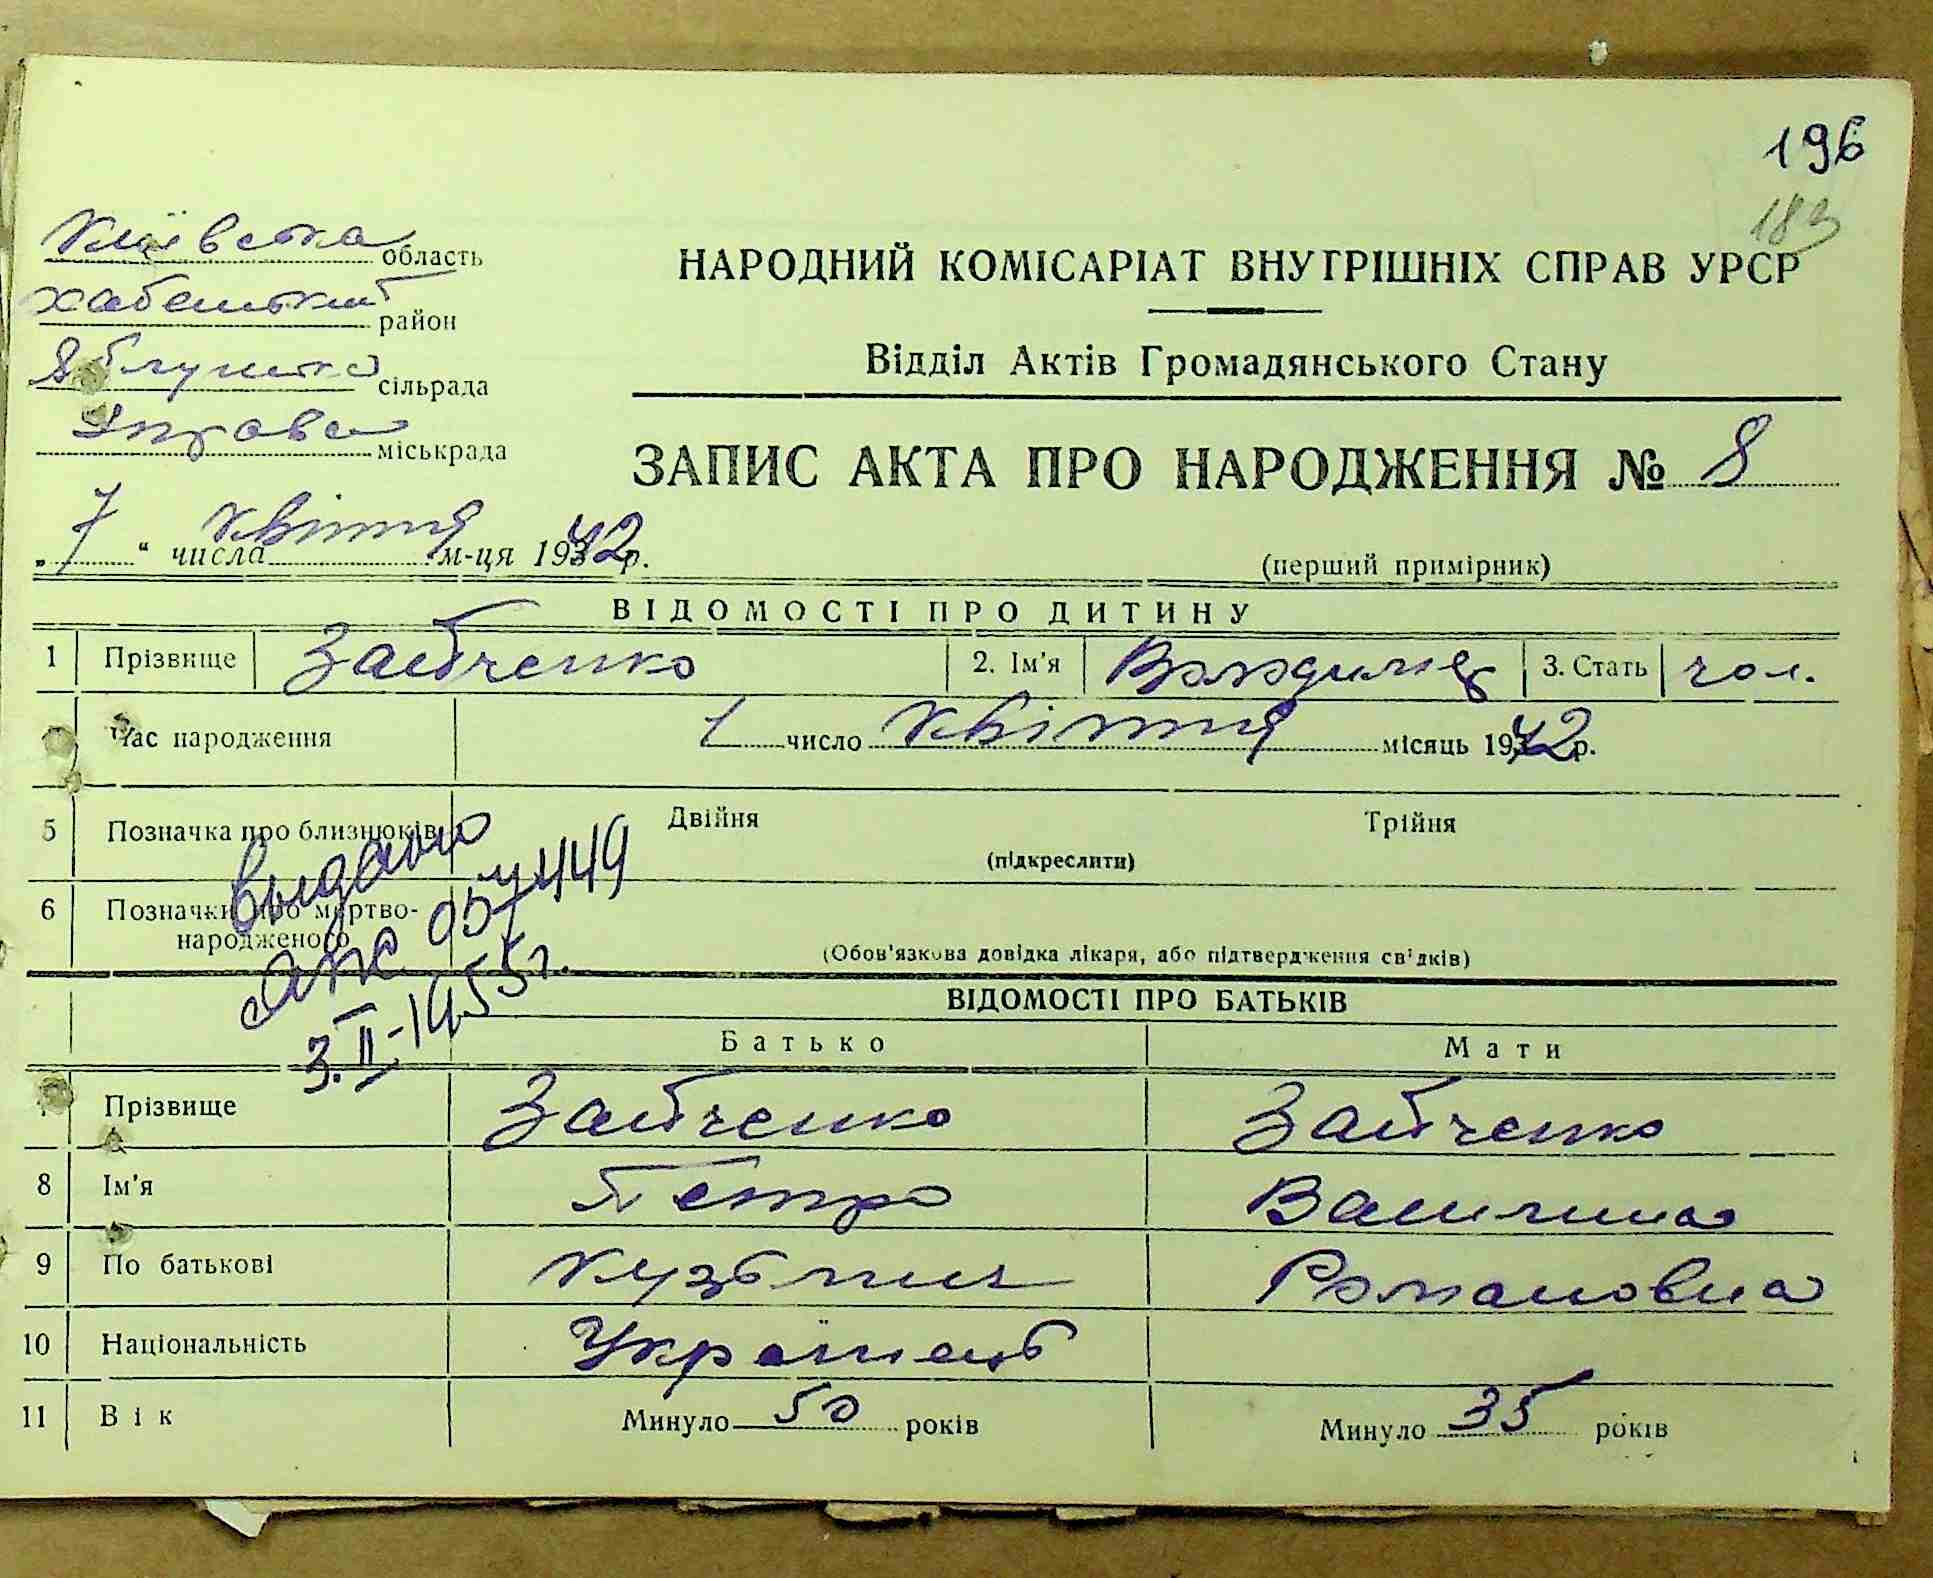 196
183
Київська область
Хабенський район
Яблунька сільрада
Управа міськрада
НАРОДНИЙ КОМІСАРІАТ ВНУТРІШНІХ СПРАВ УРСР
Відділ Актів Громадянського Стану
ЗАПИС АКТА ПРО НАРОДЖЕННЯ № 8
„7“ числа квітня м-ця 1942р.
(перший примірник)
ВІДОМОСТІ ПРО ДИТИНУ
1 Прізвище Зайченко 2. Ім'я Володимир 3. Стать чол.
Час народження 1 число квітня місяць 1942р.
5 Позначка про близнюків Двійня Трійня
(підкреслити)
6 Позначки про мертво-
народженого
(Обов'язкова довідка лікаря, або підтвердження свідків)
выдано
057449
3.II-1955г.
ВІДОМОСТІ ПРО БАТЬКІВ
Батько Мати
Прізвище Зайченко Зайченко
8 Ім'я Петро Василина
9 По батькові Кузьмич Романовна
10 Національність Українець
11 Вік Минуло 50 років Минуло 35 років